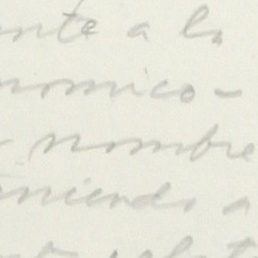 ente a la
nomico-
nombre
eniendo a